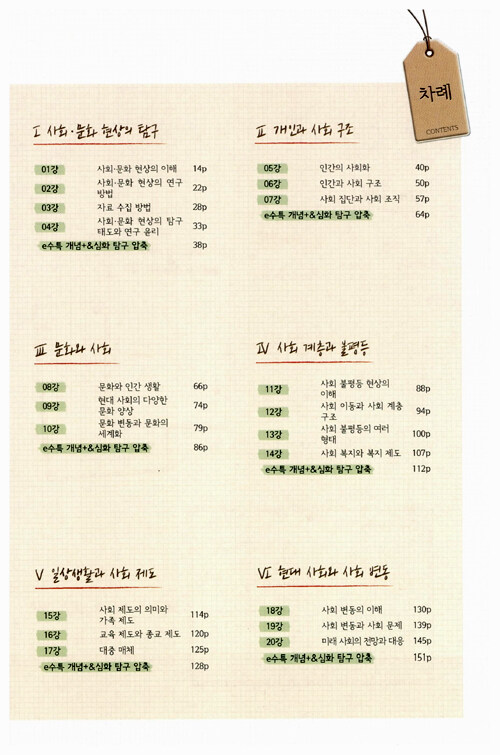 차례
CONTENTS
Ⅰ 사회·문화 현상의 탐구
01강 사회·문화 현상의 이해 14p
02강 사회·문화 현상의 연구
방법 22p
03강 자료 수집 방법 28p
04강 사회·문화 현상의 탐구
태도와 연구 윤리 33p
e수특 개념+&심화 탐구 압축 38p
Ⅱ 개인과 사회 구조
05강 인간의 사회화 40p
06강 인간과 사회 구조 50p
07강 사회 집단과 사회 조직 57p
e수특 개념+&심화 탐구 압축 64p
Ⅲ 문화와 사회
08강 문화와 인간 생활 66p
09강 현대 사회의 다양한
문화 양상 74p
10강 문화 변동과 문화의
세계화 79p
e수특 개념+&심화 탐구 압축 86p
Ⅳ 사회 계층과 불평등
11강 사회 불평등 현상의
이해 88p
12강 사회 이동과 사회 계층
구조 94p
13강 사회 불평등의 여러
형태 100p
14강 사회 복지와 복지 제도 107p
e수특 개념+&심화 탐구 압축 112p
Ⅴ 일상생활과 사회 제도
15강 사회 제도의 의미와
가족 제도 114p
16강 교육 제도와 종교 제도 120p
17강 대중 매체 125p
e수특 개념+&심화 탐구 압축 128p
Ⅵ 현대 사회와 사회 변동
18강 사회 변동의 이해 130p
19강 사회 변동과 사회 문제 139p
20강 미래 사회의 전망과 대응 145p
e수특 개념+&심화 탐구 압축 151p